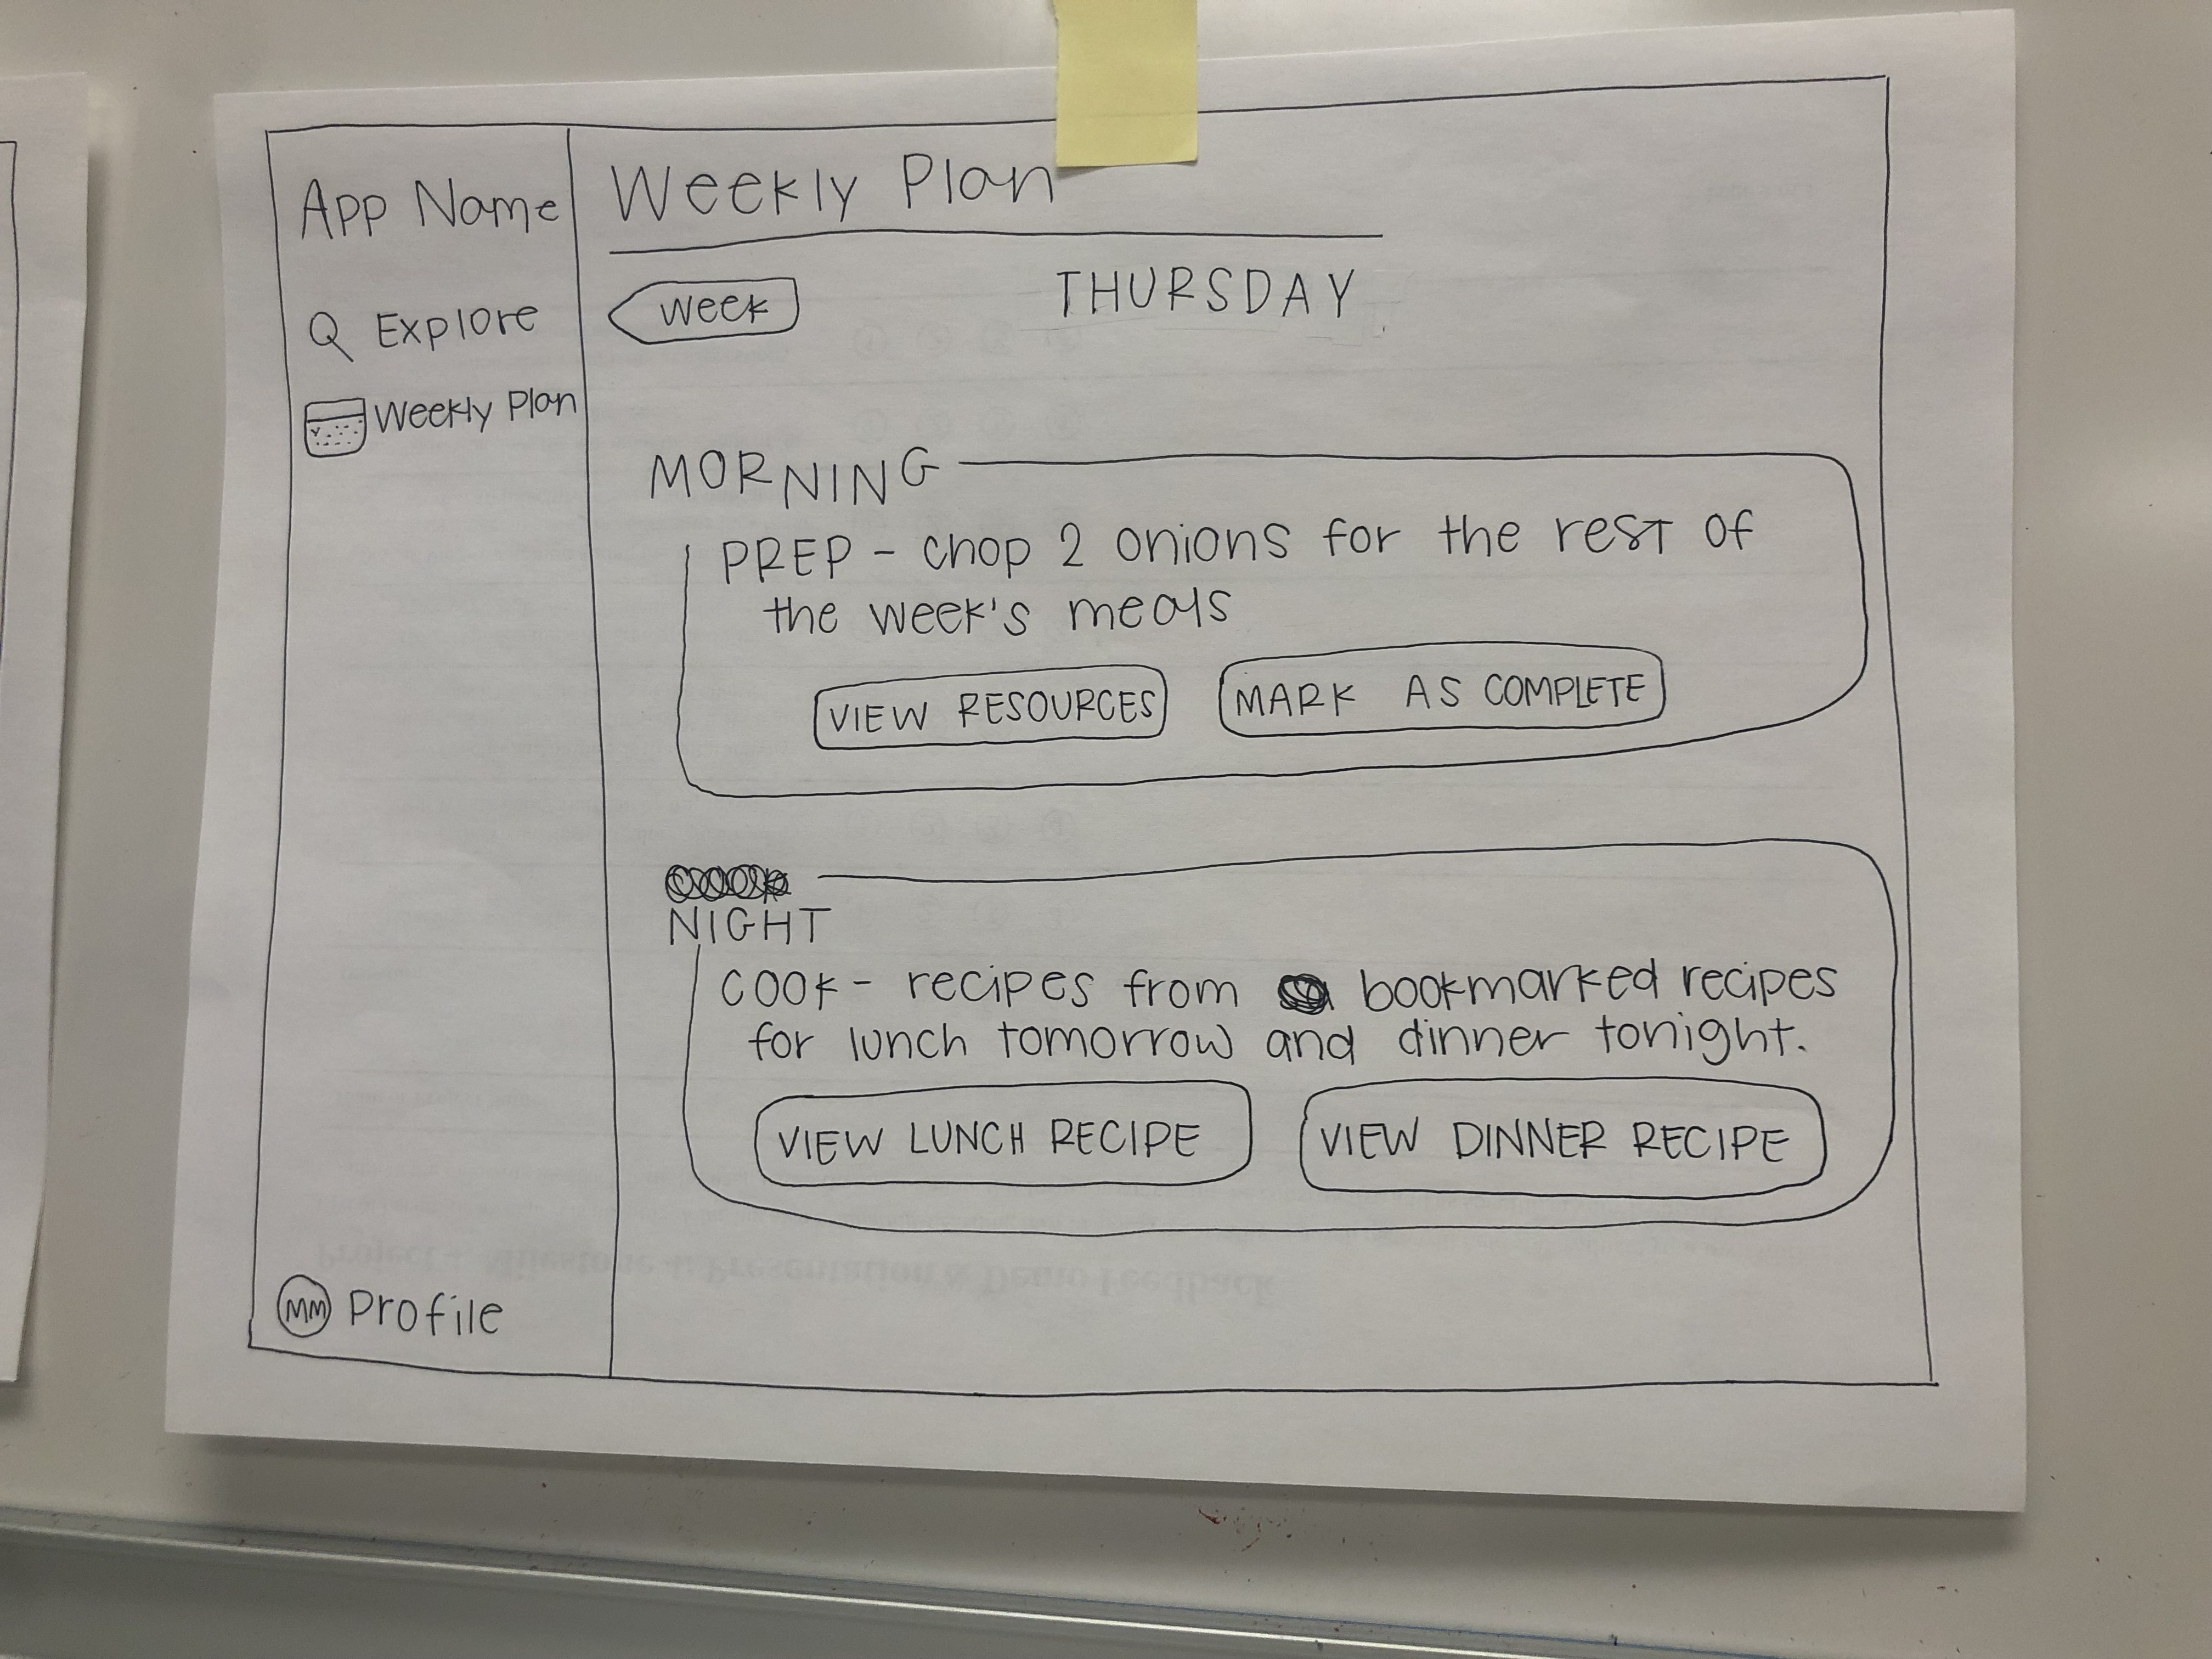 App Name
Explore
Weekly Plan
MM Profile
Weekly Plan
week
THURSDAY
MORNING
PREP - chop 2 onions for the rest of
the week's meals
VIEW RESOURCES
MARK AS COMPLETE
NIGHT
COOK - recipes from bookmarked recipes
for lunch tomorrow and dinner tonight.
VIEW LUNCH RECIPE
VIEW DINNER RECIPE
Project 4 Milestone 4: Presentation & Demo Feedback